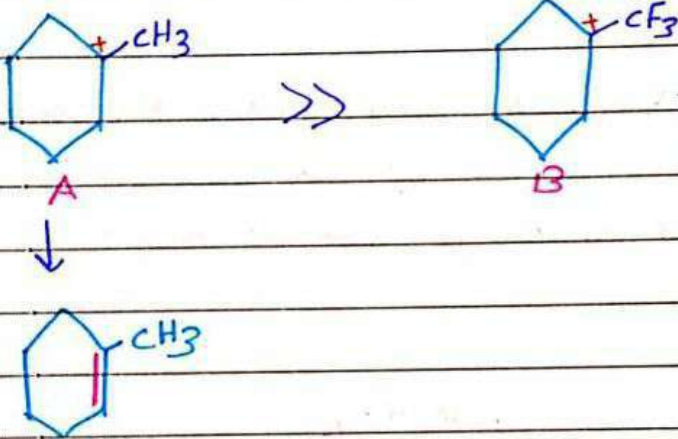 + CH3 >> + CF3
A B
↓
CH3